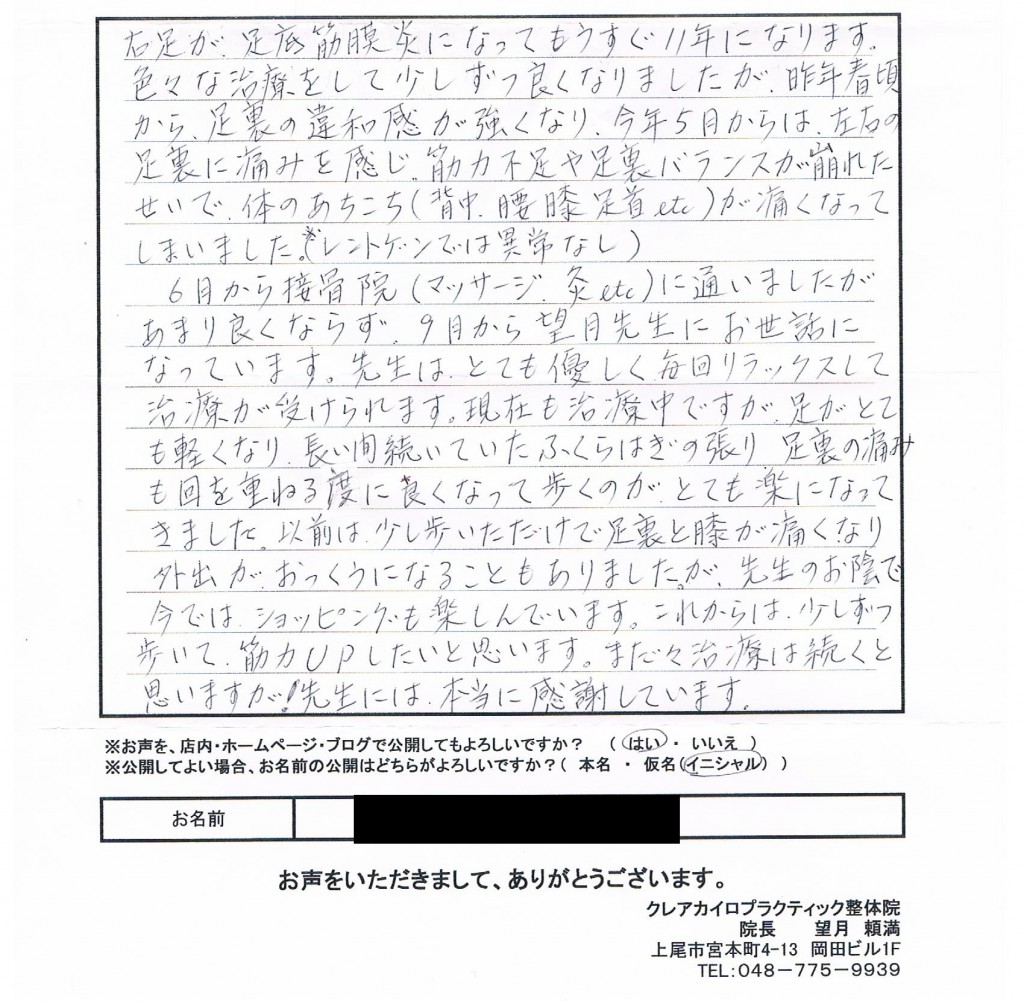 右足が、足底筋膜炎になってもうすぐ11年になります。
色々な治療をして少しずつ良くなりましたが、昨年春頃
から、足裏の違和感が強くなり、今年5月からは、左右の
足裏に痛みを感じ、筋力不足や足裏バランスが崩れた
せいで、体のあちこち(背中、腰、膝、足首etc)が痛くなって
しまいました。(※レントゲンでは異常なし)
6月から接骨院(マッサージ、灸etc)に通いましたが
あまり良くならず、9月から望月先生にお世話に
なっています。先生は、とても優しく、毎回リラックスして
治療が受けられます。現在も治療中ですが、足がとて
も軽くなり、長い間続いていたふくらはぎの張り、足裏の痛み
も回を重ねる度に良くなって歩くのが、とても楽になって
きました。以前は、少し歩いただけで足裏と膝が痛くなり
外出が、おっくうになることもありました。が、先生のお陰で
今では、ショッピングも楽しんでいます。これからは、少しずつ
歩いて、筋力UPしたいと思います。まだ々治療は続くと
思いますが!先生には、本当に感謝しています。
※お声を、店内・ホームページ・ブログで公開してもよろしいですか? (はい・いいえ)
※公開してよい場合、お名前の公開はどちらがよろしいですか?( 本名 ・ 仮名(イニシャル) )
お名前
お声をいただきまして、ありがとうございます。
クレアカイロプラクティック整体院
院長 望月 頼満
上尾市宮本町4-13 岡田ビル1F
TEL:048-775-9939